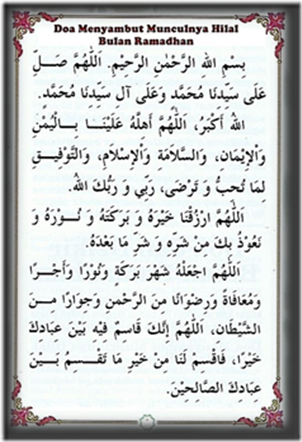 Doa Menyambut Munculnya Hilal
Bulan Ramadhan
بِسْمِ اللهِ الرَّحْمٰنِ الرَّحِيْمِ. اَللّٰهُمَّ صَلِّ
عَلَى سَيِّدِنَا مُحَمَّدٍ وَعَلَى آلِ سَيِّدِنَا مُحَمَّدٍ.
اللهُ أَكْبَرُ، اَللّٰهُمَّ أَهِلَّهُ عَلَيْنَا بِالْيُمْنِ
وَاْلإِيْمَانِ، وَالسَّلاَمَةِ وَاْلإِسْلاَمِ، وَالتَّوْفِيْقِ
لِمَا تُحِبُّ وَ تَرْضَى، رَبِّي وَ رَبُّكَ اللهُ.
اَللّٰهُمَّ ارْزُقْنَا خَيْرَهُ وَ بَرَكَتَهُ وَ نُوْرَهُ وَ
نَعُوْذُ بِكَ مِنْ شَرِّهِ وَ شَرِّ مَا بَعْدَهُ.
اَللّٰهُمَّ اجْعَلْهُ شَهْرَ بَرَكَةٍ وَنُوْرًا وَأَجْرًا
وَمُعَافَاةً وَرِضْوَانًا مِنَ الرَّحْمٰنِ وَجِوَارًا مِنَ
الشَّيْطَانِ، اَللّٰهُمَّ إِنَّكَ قَاسِمٌ فِيْهِ بَيْنَ عِبَادِكَ
خَيْرًا، فَاقْسِمْ لَنَا مِنْ خَيْرِ مَا تَقْسِمُ بَيْنَ
عِبَادِكَ الصَّالِحِيْنَ.